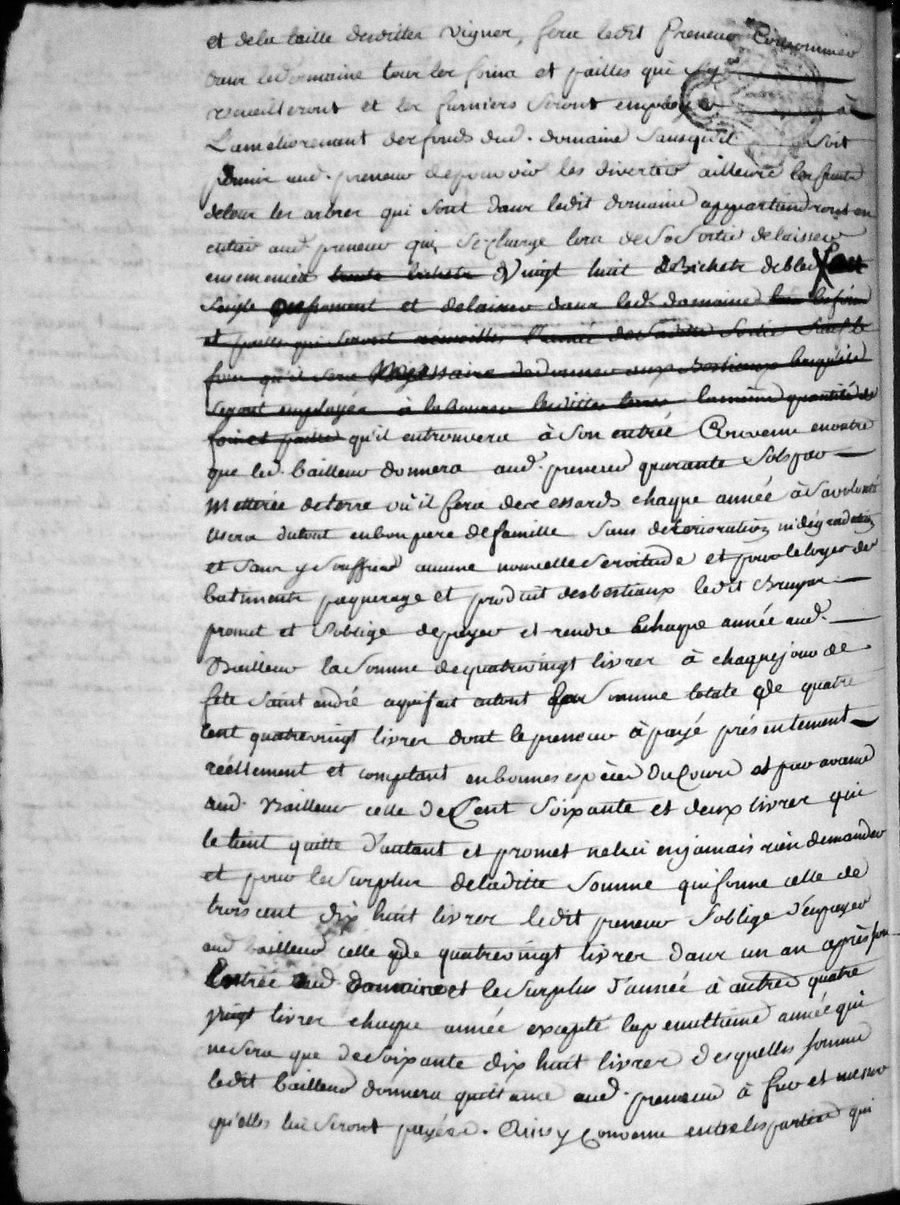 et de la taille desdittes vignes, fera ledit preneur consommer
dans le domaine tous les foins et pailles qui sy
recueilleront et les fumiers seront employés à
L'améliorement des fonds dud. domaine sans qu'il soit
permis aud. preneur de pouvoir les divertir ailleurs les fruits
de tous les arbres qui sont dans ledit domaine appartiendront en
entier aud preneur qui se chargera de sa sortie de laisser
ensemencé trente bichets vingt huit Bichets de bled
Seigle et de laisser dans led. domaine les foins
et pailles qui seront recueillis l'année de sadite sortie sauf le
foin qu'il sera Necessaire de donner aux Bestiaux lesquels
seront employés à la même quantité de
foin et paille qu'il entrouvera à Son entrée Convenu enoutre
que led. bailleur donnera aud. preneur quarante Sols par
Metterée de terre où il fera des essards chaque année à sa volonté
Usera dutout en bon pere de famille sans deterioration ni dégradation
et Sans y Souffrir aucune nouvelle Servitude et pour le loyer des
batiments paquerage et produit des bestiaux ledit Bruyas
promet et S'oblige de payer et rendre chaque année aud.
Bailleur la Somme de quatrevingt livres à chaque jour de
fete Saint andré aquifait autant Somme totale de quatre
Cent quatrevingt livres dont le preneur à payé présentement
réellement et comptant en bonnes espèces du Cours et par avance
aud. Bailleur celle de Cent Soixante et deux livres qui
le tient quitte d'autant et promet ne lui en jamais rien demander
et pour le Surplus de laditte Somme qui forme celle de
trois cent dix huit livres ledit preneur S'oblige d'en payer
aud bailleur celle de quatrevingt livres dans un an après son
Entrée aud domaine et le Surplus d'année à autres quatre
vingt livres chaque année excepté la penultieme année qui
ne sera que de Soixante dix huit livres desquelles somme
ledit bailleur donnera quittance aud. preneur à fur et mesure
qu'elles lui Seront payées. Ainsy Convenu entre les parties qui